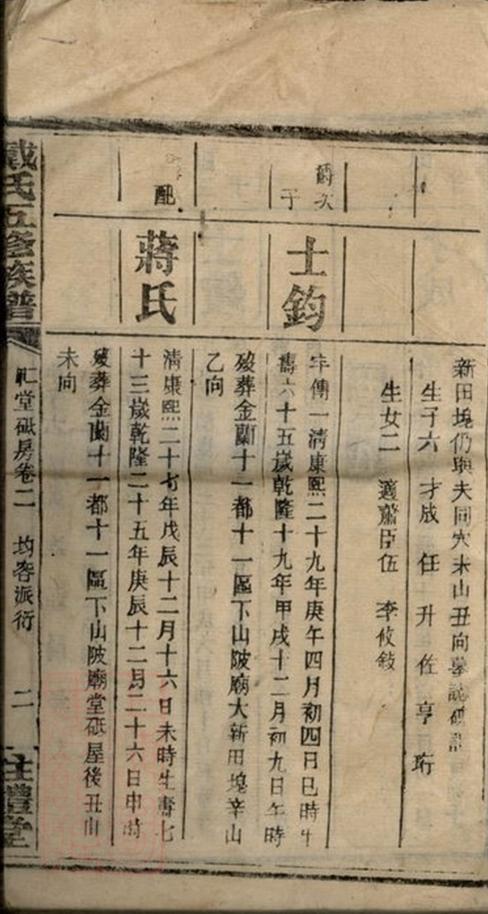 新田塊仍與夫同穴未山丑向墓誌碑記
生子六 才成 任 升 佐 亨 珩
生女二 適蕭臣伍 李攸敍
爵次子
士鈞
字傳一清康熙二十九年庚午四月初四日巳時生
壽六十五歲乾隆十九年甲戌十二月初九日午時
歿葬金蘭十一都十一區下山陂廟大新田塊辛山
乙向
配
蔣氏
清康熙二十七年戊辰十二月十六日未時生壽七
十三歲乾隆二十五年庚辰十二月二十六日申時
歿葬金蘭十一都十一區下山陂廟堂砥屋後丑山
未向
戴氏五修族譜
砥房卷二
派衍
二
禮堂